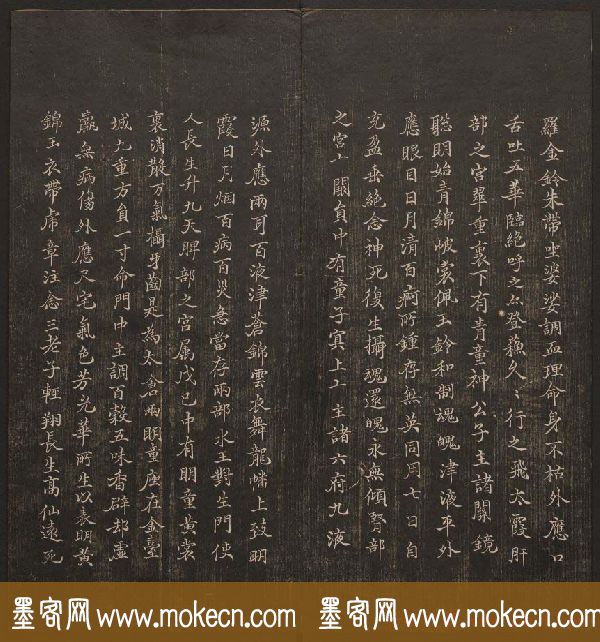 羅金鈴朱帶坐婆娑調血理命身不枯外應口
舌吐五華臨絶呼之亦登蘓久〻行之飛太霞肝
部之宮翠重裏下有青童神公子主諸關鏡
聡明始青綿帔裳佩玉鈴和制魂魄津液平外
應眼目日月清百痾所鍾存無英同用七日自
充盈垂絶念神死復生攝魂還魄永無傾腎部
之宮〻闕貟中有童子冥上〻主諸六府九液
源外應兩耳百液津蒼錦雲衣舞龍幡上致明
霞日月烟百病百災急當存兩部水王對生門使
人長生升九天脾部之宮属戊己中有明童黄裳
裏消散万氣攝牙齒是為太倉兩明童座在金臺
城九重方負一寸命門中主調百穀五味香辟却虛
羸無病傷外應尺宅氣色芳光華所生以表明黄
錦玉衣帶虎章注念三老子輕翔長生高仙遠死
墨客网 www.mokecn.com 墨客网 www.mokecn.com